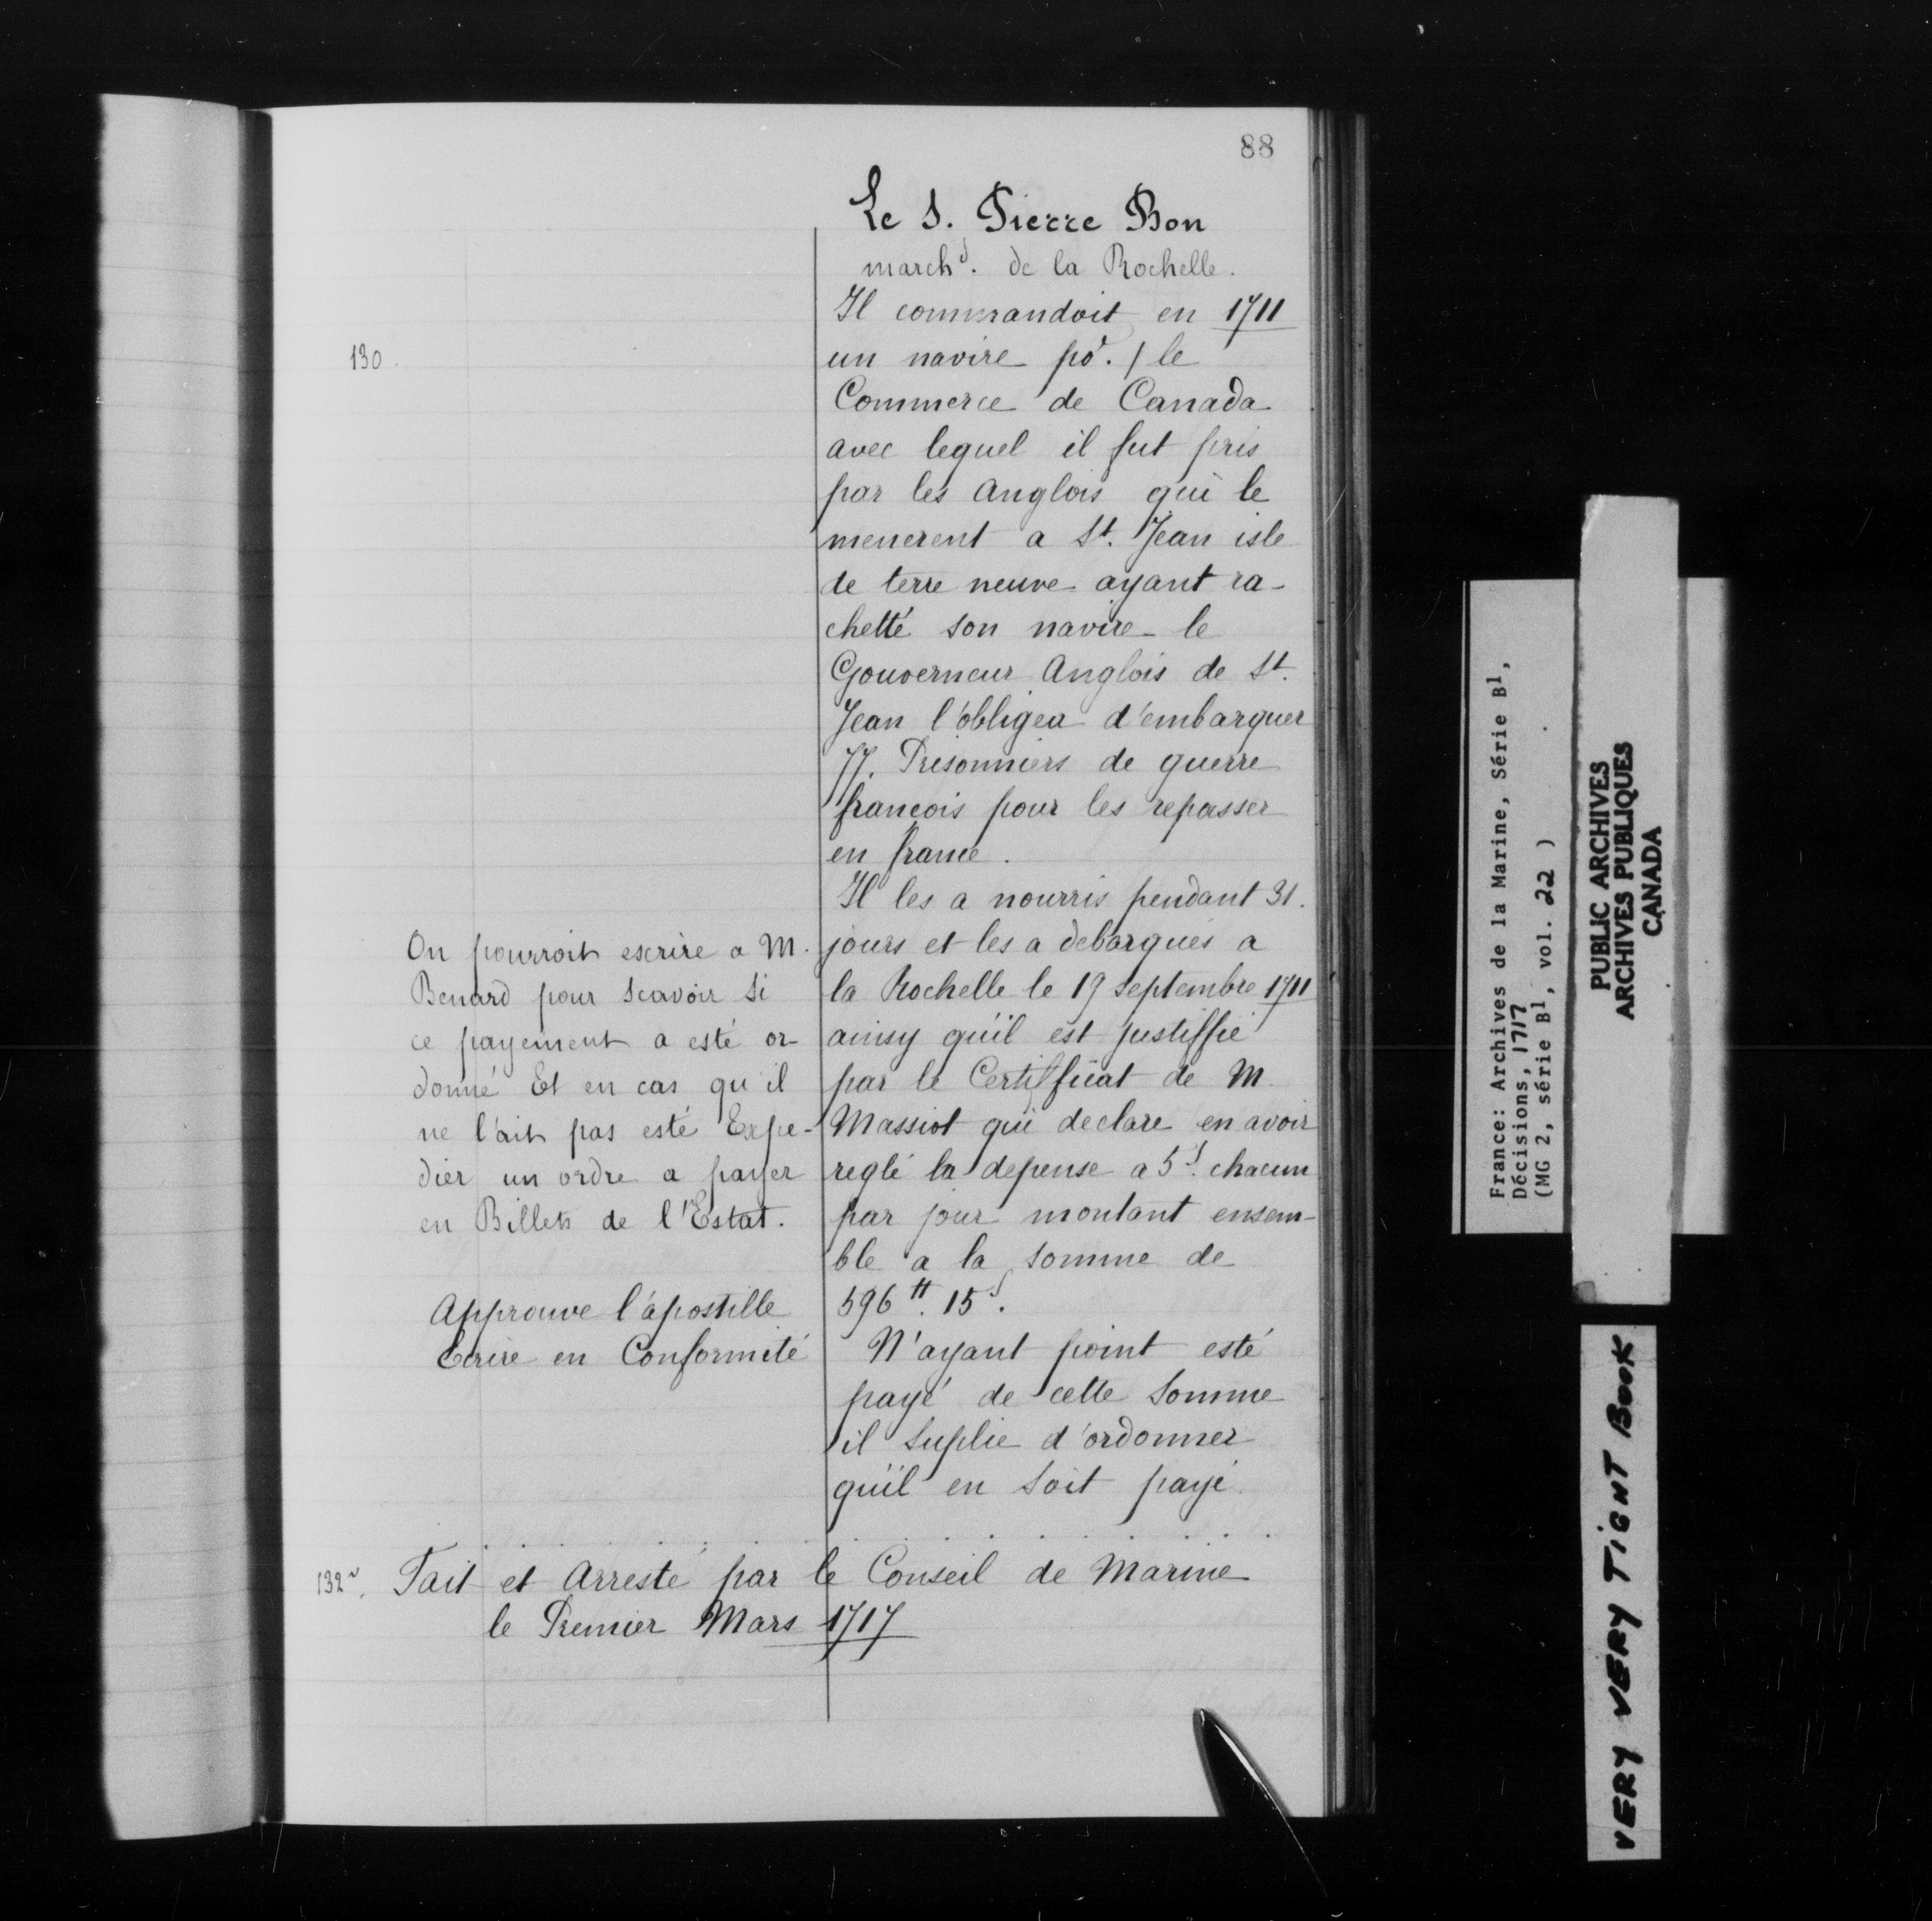 88
Le S. Pierre Bon
march^d. de la Rochelle.
Il commandoit en 1711
130.
un navire po^r. / le
Commerce de Canada
avec lequel il fut pris
par les Anglois qui le
menerent a St. Jean isle
de terre neuve ayant ra-
chetté son navire le
Gouverneur Anglois de St.
Jean l'obligea d'embarquer
77. Prisonniers de guerre
francois pour les repasser
en france.
Il les a nourris pendant 31.
jours et les a debarqués a
la Rochelle le 19 Septembre 1711
ainsy qu'il est justiffié
par le Certifficat de M
Massiot qui declare en avoir
reglé la depense a 5^s. chacun
par jour montant ensem-
ble a la somme de
596 ^tt. 15^s.
N'ayant point esté
payé de cette Somme
il Suplie d'ordonner
qu'il en Soit payé.
On pourroit escrire a M.
Benard pour Scavoir Si
ce payement a esté or-
donné Et en cas qu'il
ne l'ait pas esté Expe-
dier un ordre a payer
en Billets de l'Estat.
Approuve l'apostille
Ecrire en Conformité
132^v. Fait et Arresté par le Conseil de Marine
le Premier Mars 1717
France: Archives de la Marine, Série B1,
Décisions, 1717
(MG 2, série B1, vol. 22 )
PUBLIC ARCHIVES
ARCHIVES PUBLIQUES
CANADA
VERY VERY TIGHT BOOK